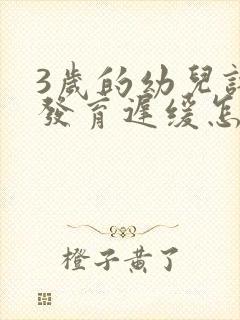 3歲的幼兒
發育遲緩怎
橙子黃了